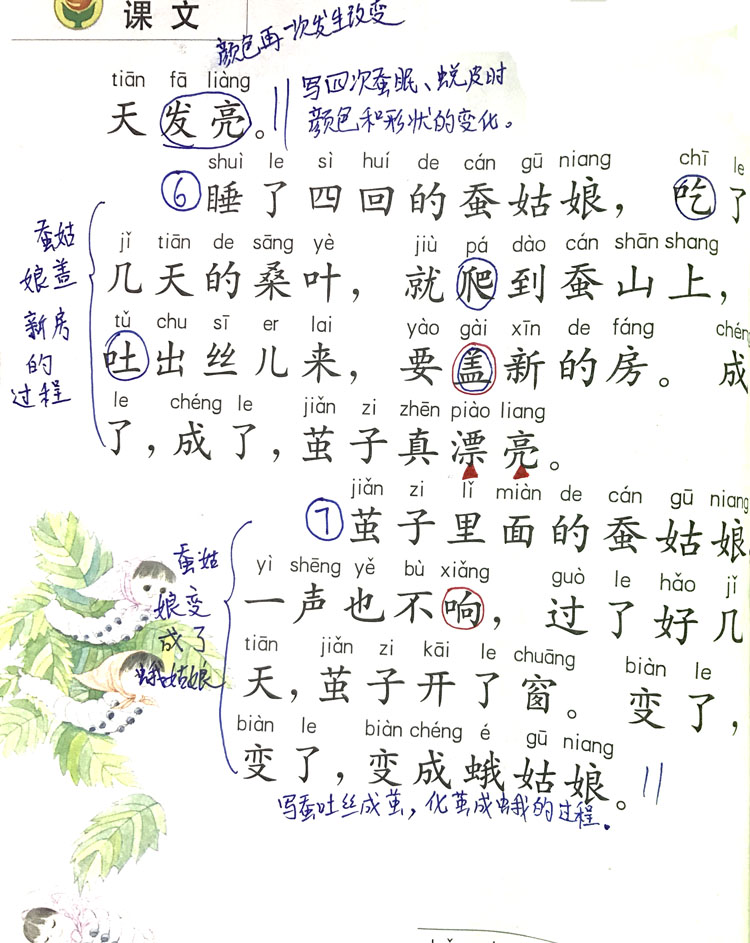 课文
颜色再一次发生改变
tiān fā liàng
天发亮。
写四次蚕眠、蜕皮时
颜色和形状的变化。
shuì le sì huí de cán gū niang chī le
⑥睡了四回的蚕姑娘，吃了
jǐ tiān de sāng yè jiù pá dào cán shān shang
几天的桑叶，就爬到蚕山上，
tǔ chu sī er lai yào gài xīn de fáng chéng
吐出丝儿来，要盖新的房。成
le chéng le jiǎn zi zhēn piào liang
了，成了，茧子真漂亮。
蚕姑
娘盖
新房
的
过程
jiǎn zi lǐ miàn de cán gū niang
⑦茧子里面的蚕姑娘
yì shēng yě bù xiǎng guò le hǎo jǐ
一声也不响，过了好几
tiān jiǎn zi kāi le chuāng biàn le
天，茧子开了窗。变了，
biàn le biàn chéng é gū niang
变了，变成蛾姑娘。
蚕姑
娘变
成了
蛾姑娘
写蚕吐丝成茧，化茧成蛾的过程.